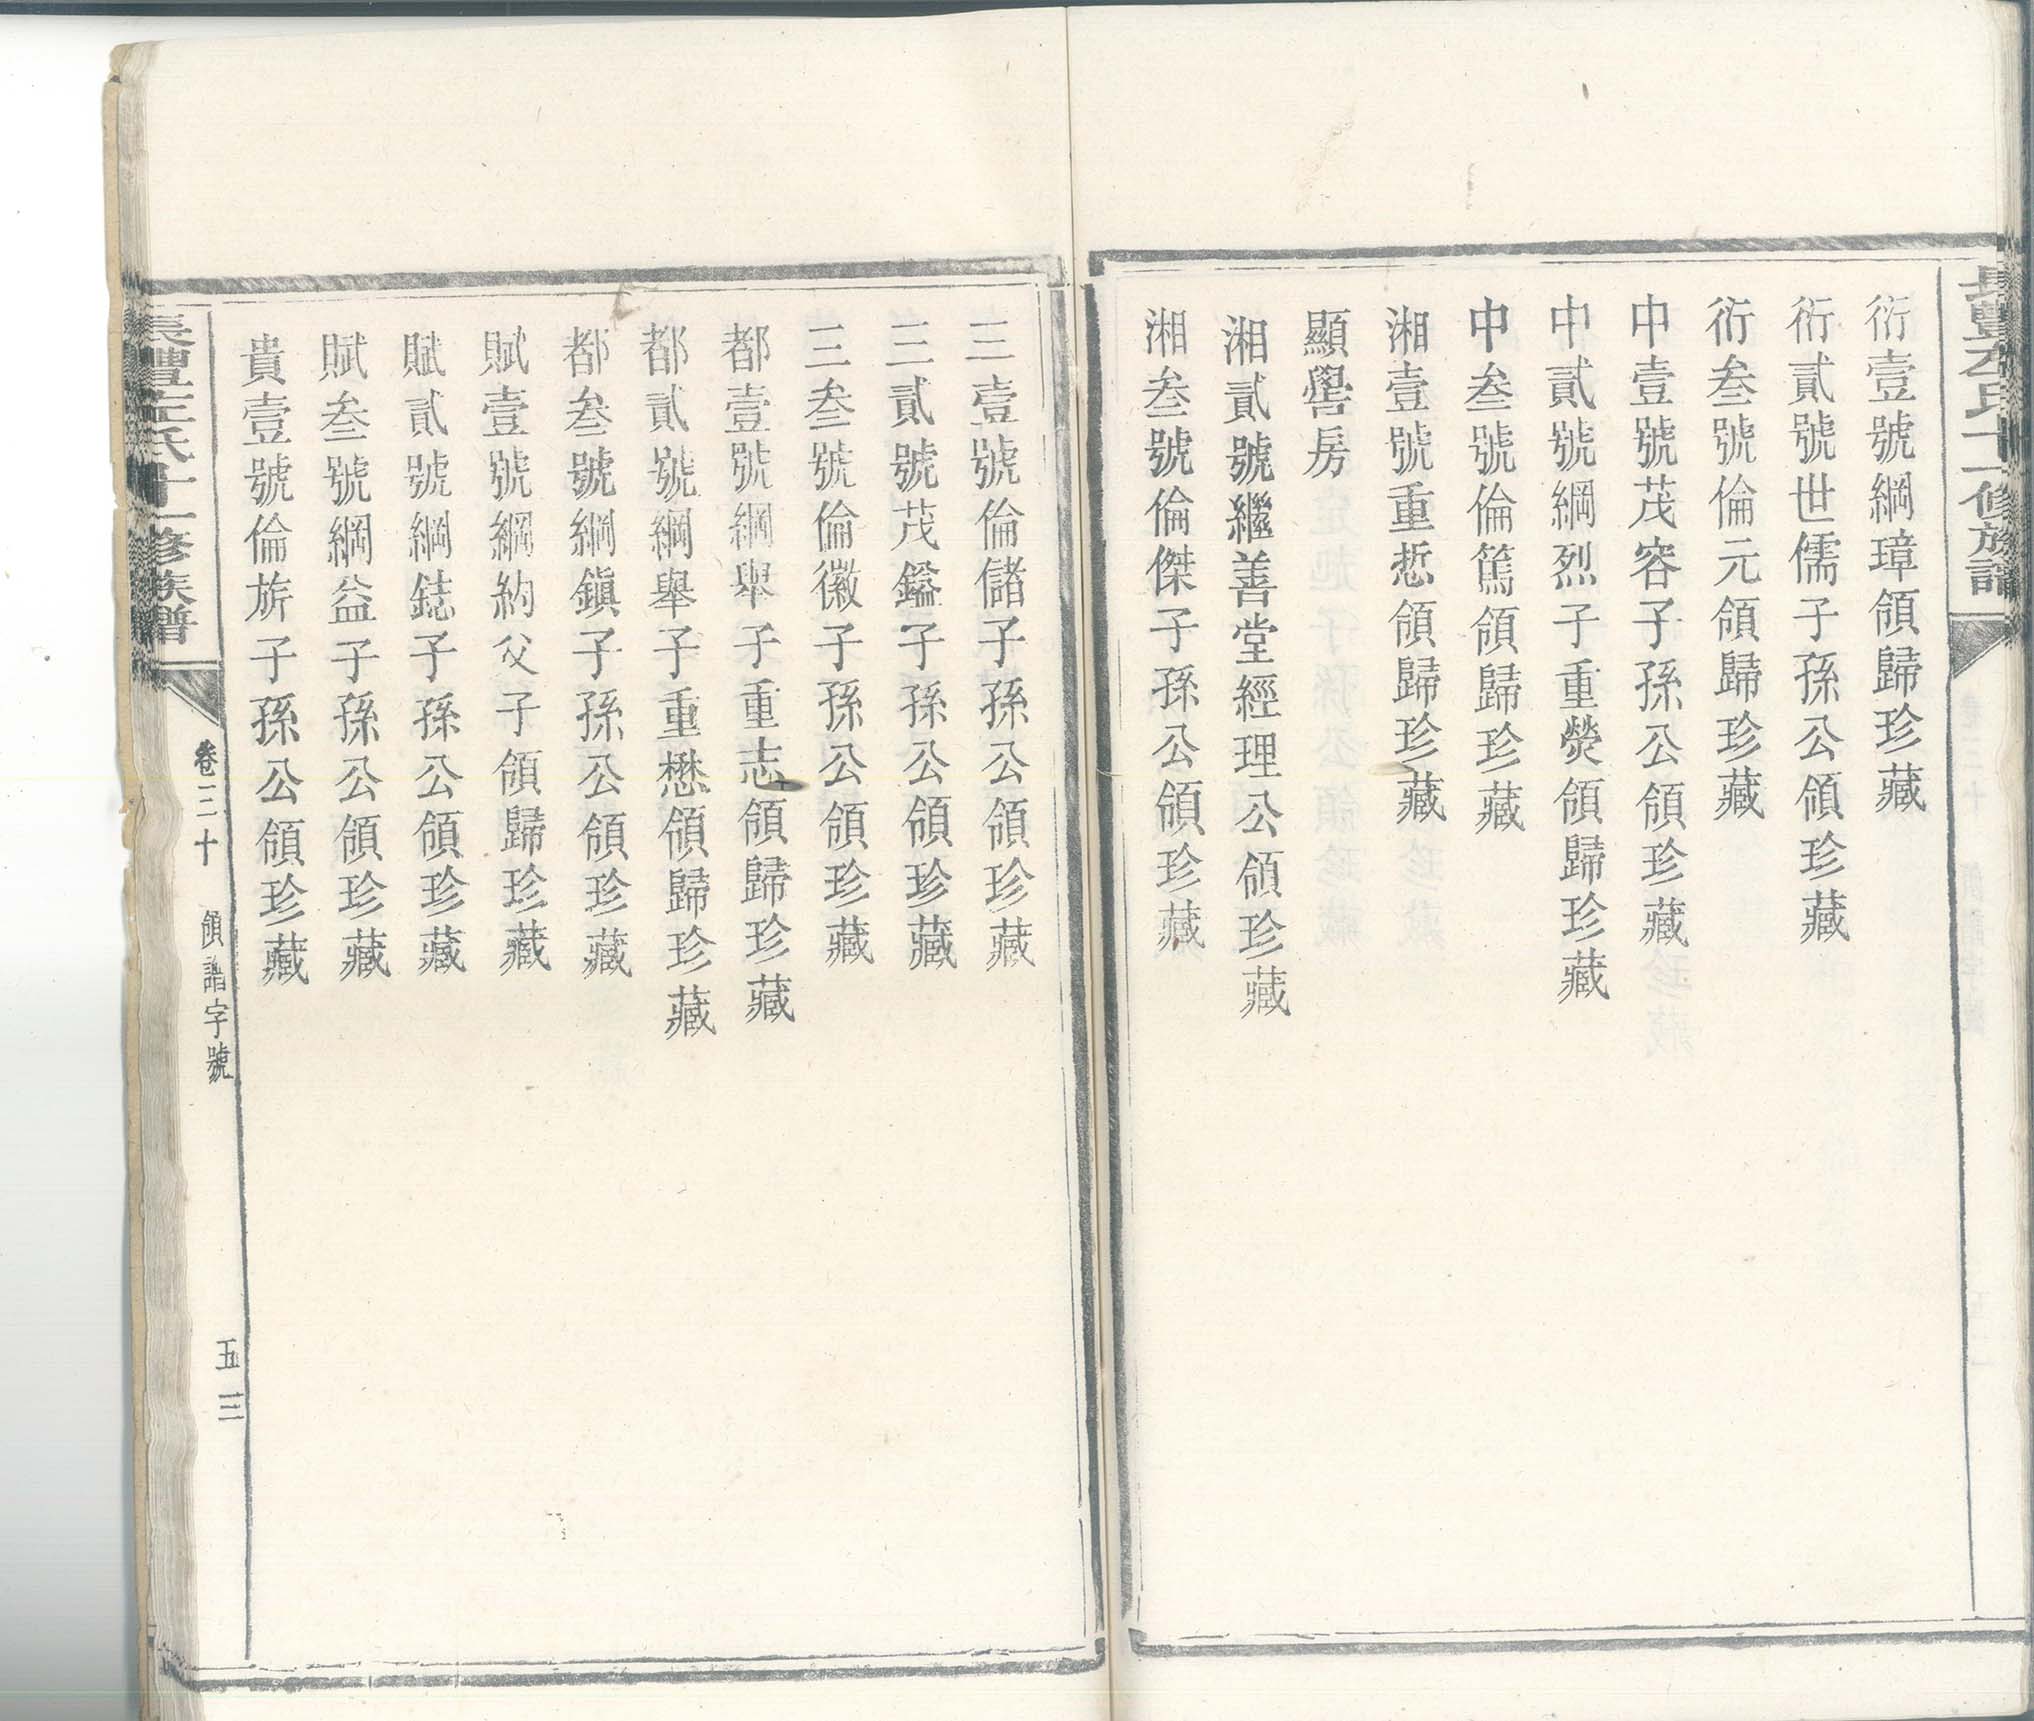 長豐左氏十一修族譜
衍壹號綱璋領歸珍藏
衍貳號世儒子孫公領珍藏
衍叁號倫元領歸珍藏
中壹號茂容子孫公領珍藏
中貳號綱烈子重熒領歸珍藏
中叁號倫篤領歸珍藏
湘壹號重悊領歸珍藏
顯嚳房
湘貳號繼善堂經理公領珍藏
湘叁號倫傑子孫公領珍藏
三壹號倫儲子孫公領珍藏
三貳號茂鎰子孫公領珍藏
三叁號倫徽子孫公領珍藏
都壹號綱舉子重志領歸珍藏
都貳號綱舉子重懋領歸珍藏
都叁號綱鎮子孫公領珍藏
賦壹號綱約父子領歸珍藏
賦貳號綱鋕子孫公領珍藏
賦叁號綱益子孫公領珍藏
貴壹號倫旂子孫公領珍藏
長豐左氏十一修族譜
卷三十 領譜字號
五三